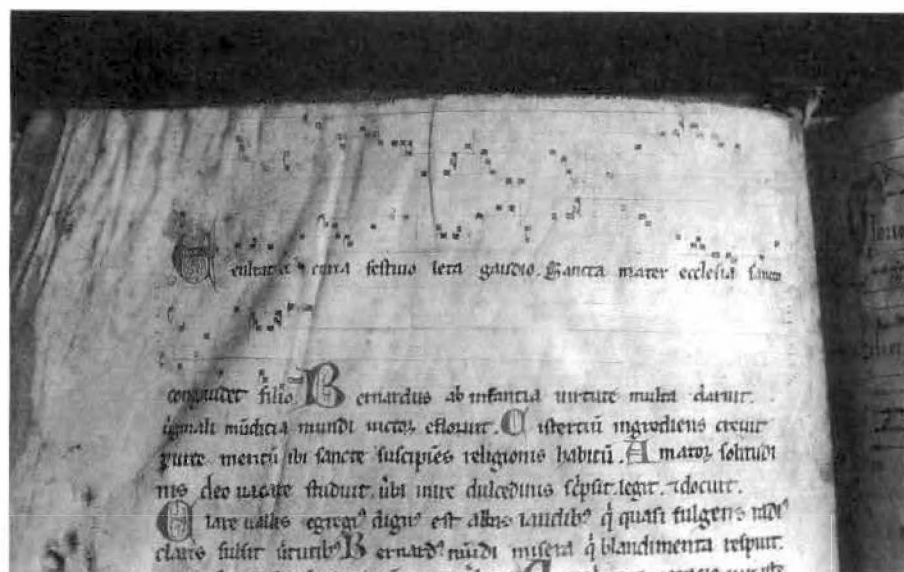 Exultatiet curia festiuo leta gaudio. Sancta mater ecclesia sancto
congaudet filio. Bernardus ab infantia uirtute multa claruit.
uiginali mūdicia mundi uictor efloruit. Cisterciū ingrediens creuit
uite meritū ibi sancte suscipiēs religionis habitū. Amatoꝝ solitudi
nis deo uacare studuit. ubi mire dulcedinis sc̄psit. legit. ⁊docuit.
Clare uallis egregiꝰ dignꝰ est laudibꝰ q̄ quasi fulgens
claris fulsit uirtutibꝰ Bernardꝰ mūdi misera q̄ blandimenta respuit.